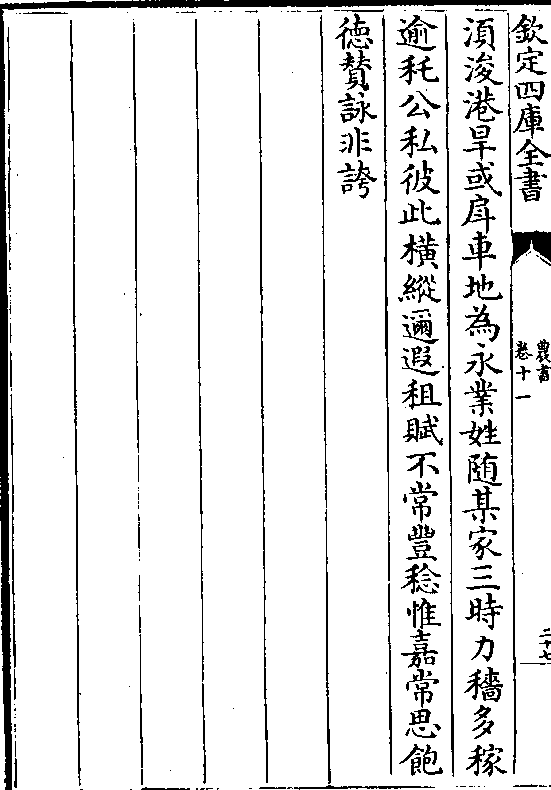 欽定四庫全書
農書
卷十一
二十七
湏浚港旱或戽車地為永業姓随某家三時力穡多稼
逾秏公私彼此横縱邇遐租賦不常豐稔惟嘉常思飽
徳賛詠非誇